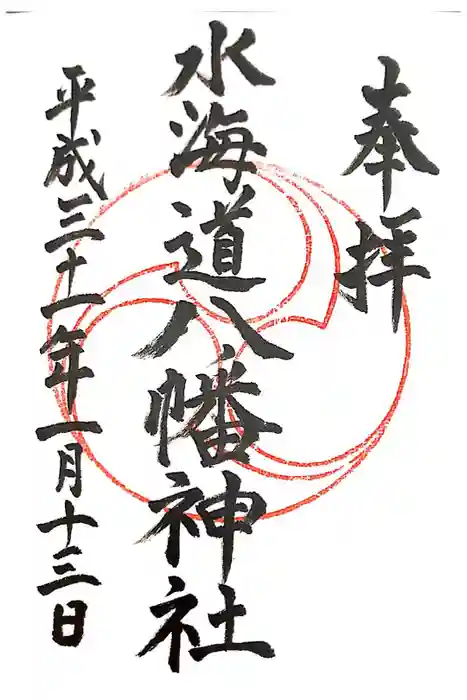 奉拝
水海道八幡神社
平成三十一年一月十三日